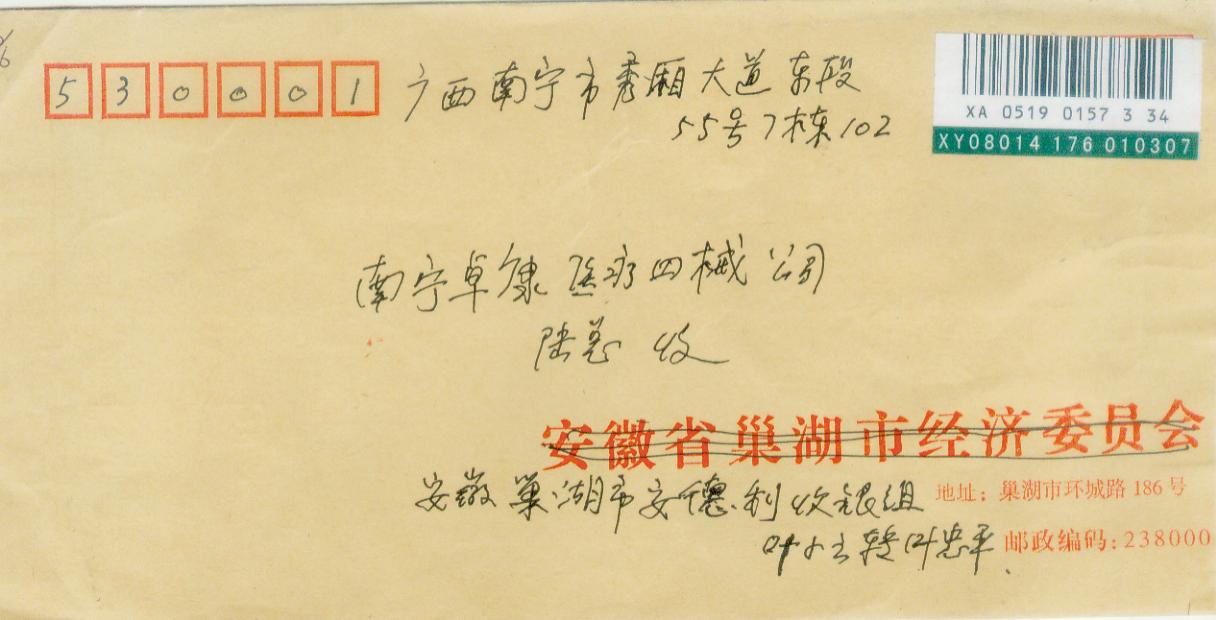 530001
广西南宁市秀厢大道东段
55号7栋102
XA 0519 0157 3 34
XY08014 176 010307
南宁卓康医疗四械公司
陆总 收
安徽省巢湖市经济委员会
安徽巢湖市安德利收银组
地址：巢湖市环城路186号
叶小立转叶忠平
邮政编码：238000